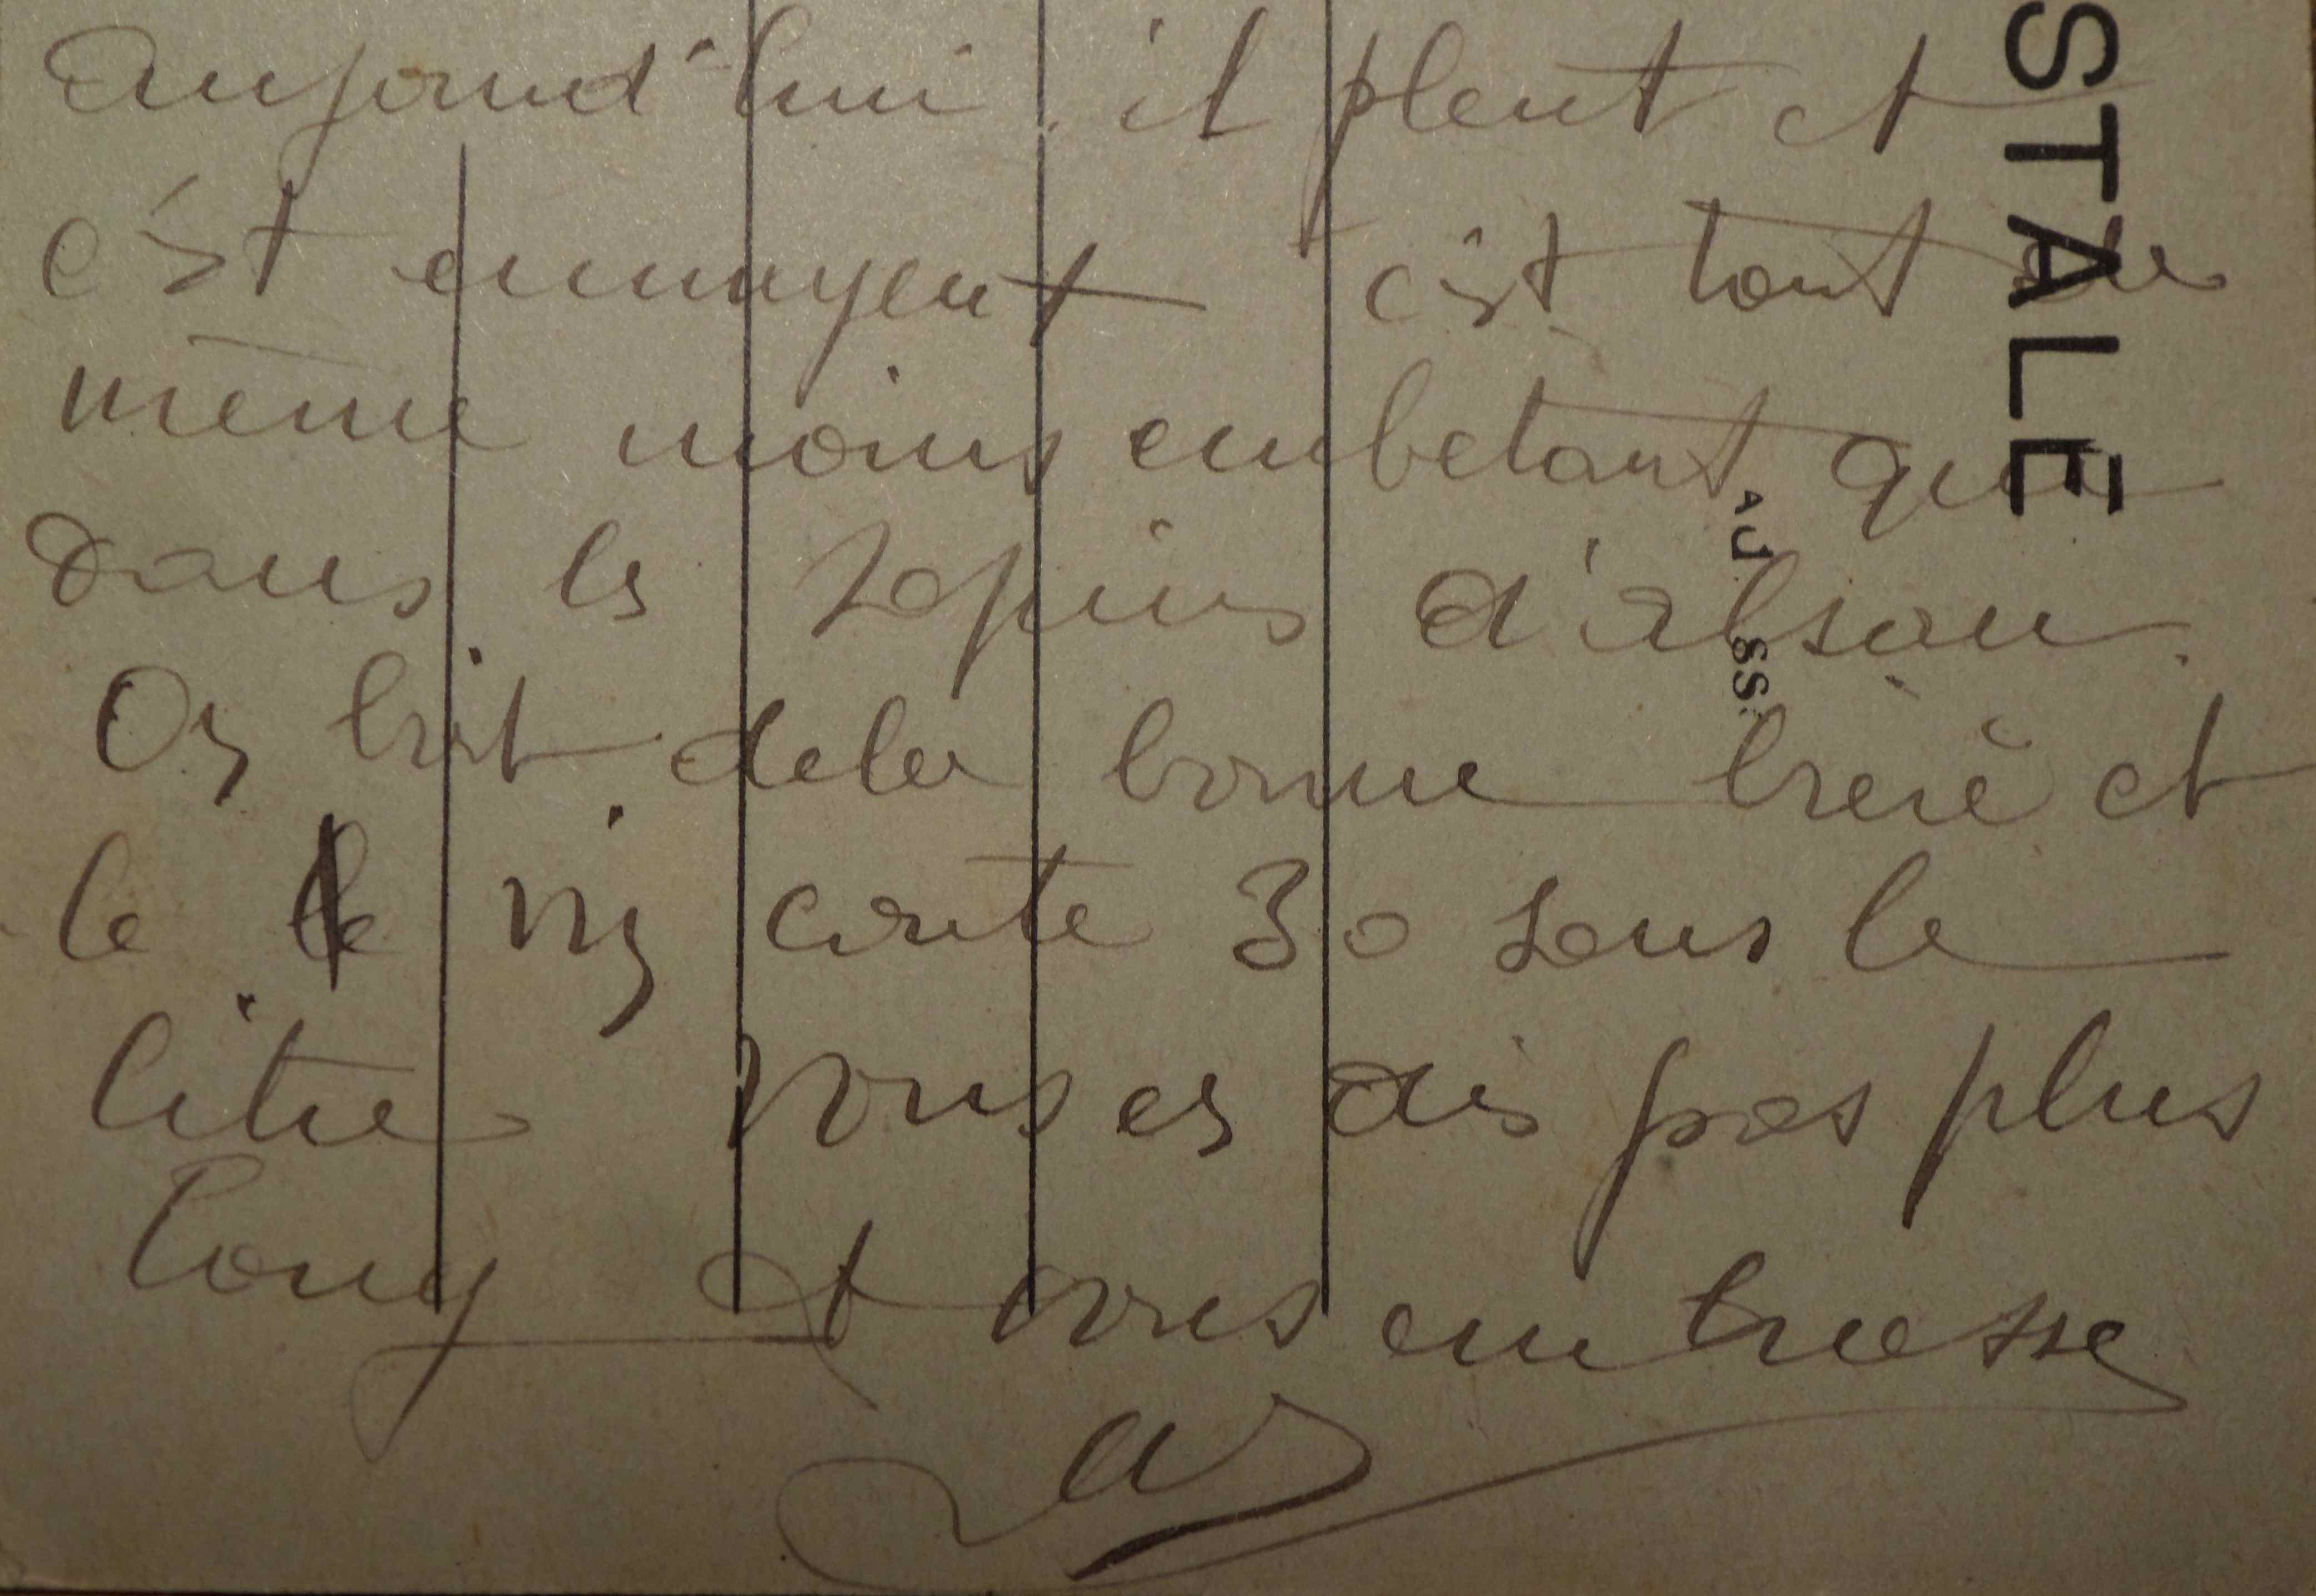 aujourd'hui. il pleut et
c'est ennuyent c'est tout de
même moins embetant que
dans les sapins d'alsau.
On brit dela bonne breiè et
le le vin coute 30 sous le
litre vous en dis pas plus
long et vous embrasse
STALE